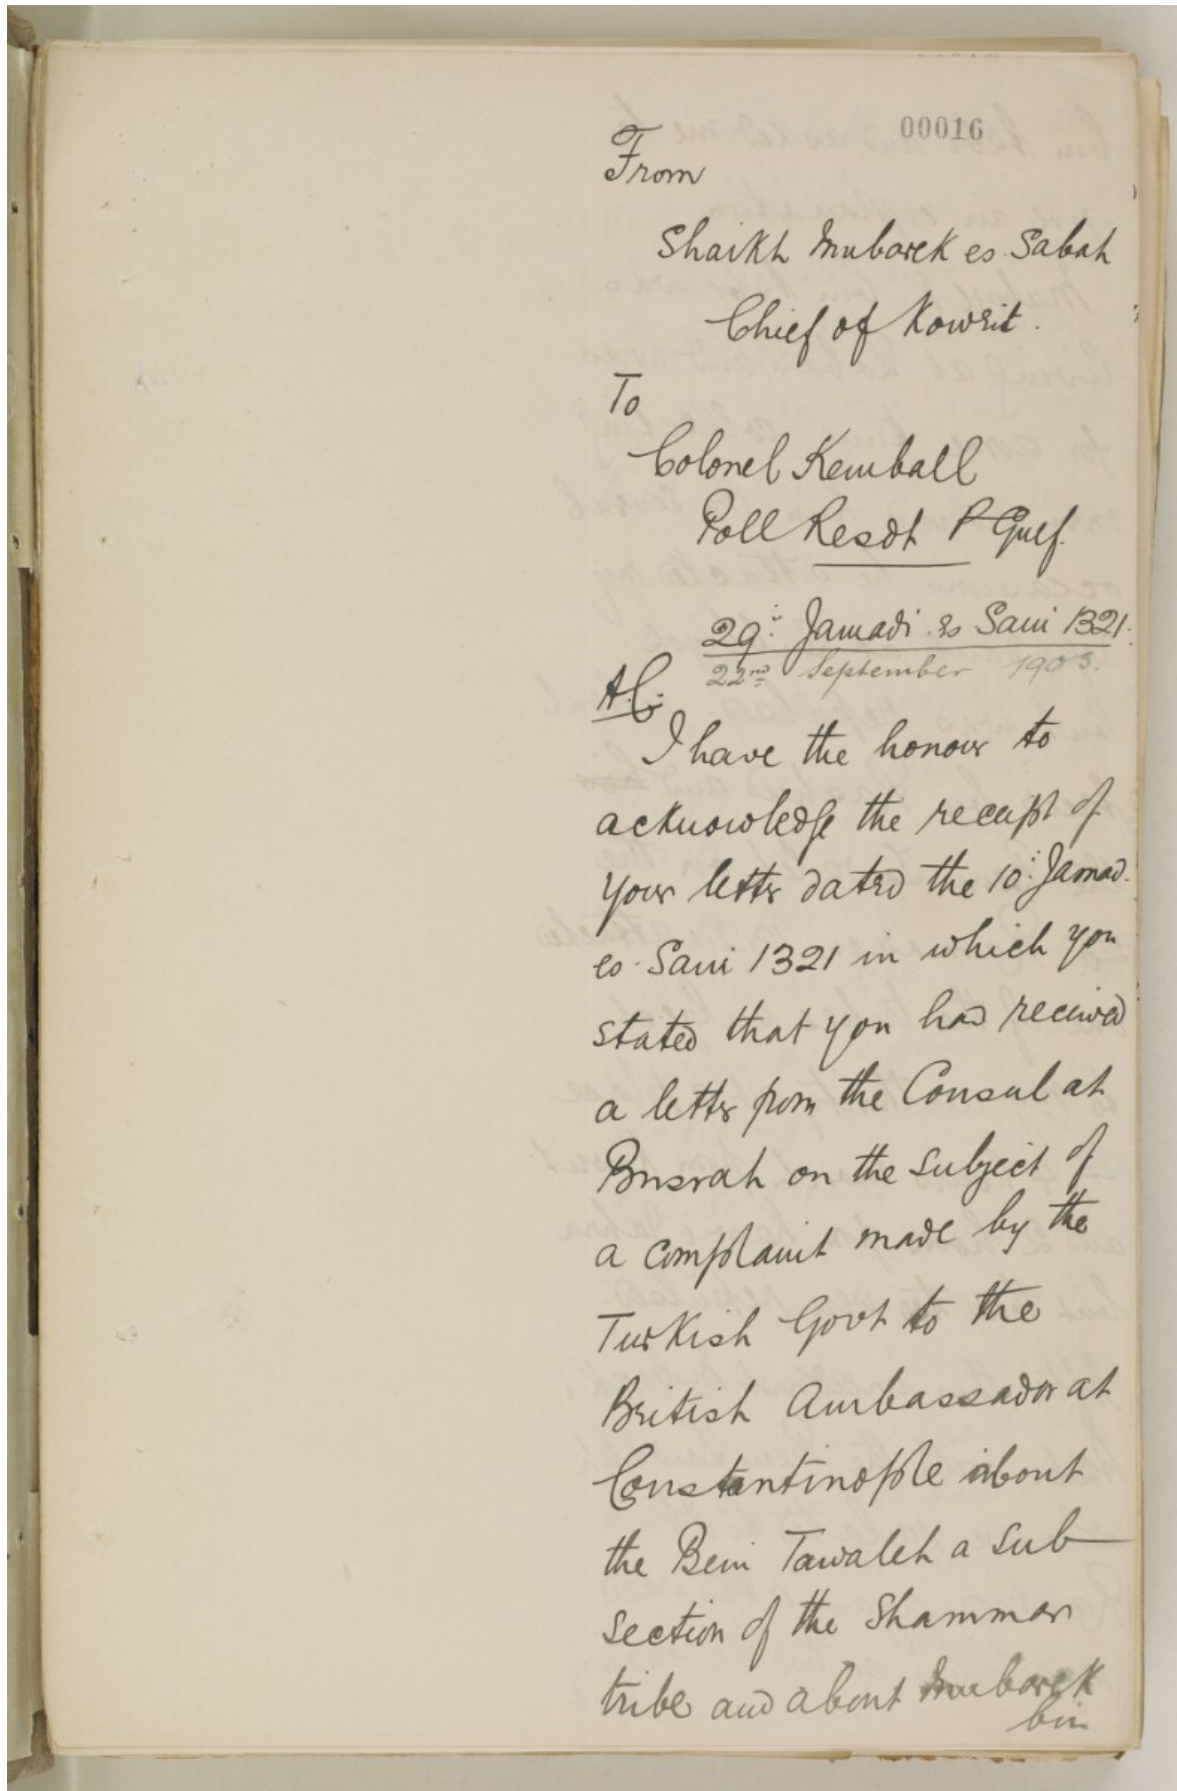 00016
From
Shaikh Mubarek es Sabah
Chief of Koweit.
To
Colonel Kemball
Poll Resdt P Gulf.
29: Jamadi es Sani 1321.
22nd September 1903.
A.C.
I have the honour to
acknowledge the receipt of
your letter dated the 10: Jamad.
es. Sani 1321 in which you
stated that you had received
a letter from the Consul at
Busrah on the subject of
a complaint made by the
Turkish Govt to the
British Ambassador at
Constantinople about
the Beni Tawaleh a sub-
section of the Shammar
tribe and about Mubarek
bin